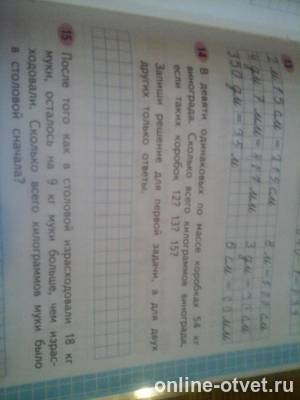 13
2 м 15 см = 215 см
4 дм 7 мм = 407 мм
350 дм = 35 м
14 В девяти одинаковых по массе коробках 54 кг
винограда. Сколько всего килограммов винограда,
если таких коробок 12? 13? 15?
Запиши решение для первой задачи, а для двух
других только ответы.
15 После того как в столовой израсходовали 18 кг
муки, осталось на 9 кг муки больше, чем израс-
ходовали. Сколько всего килограммов муки было
в столовой сначала?
online-otvet.ru